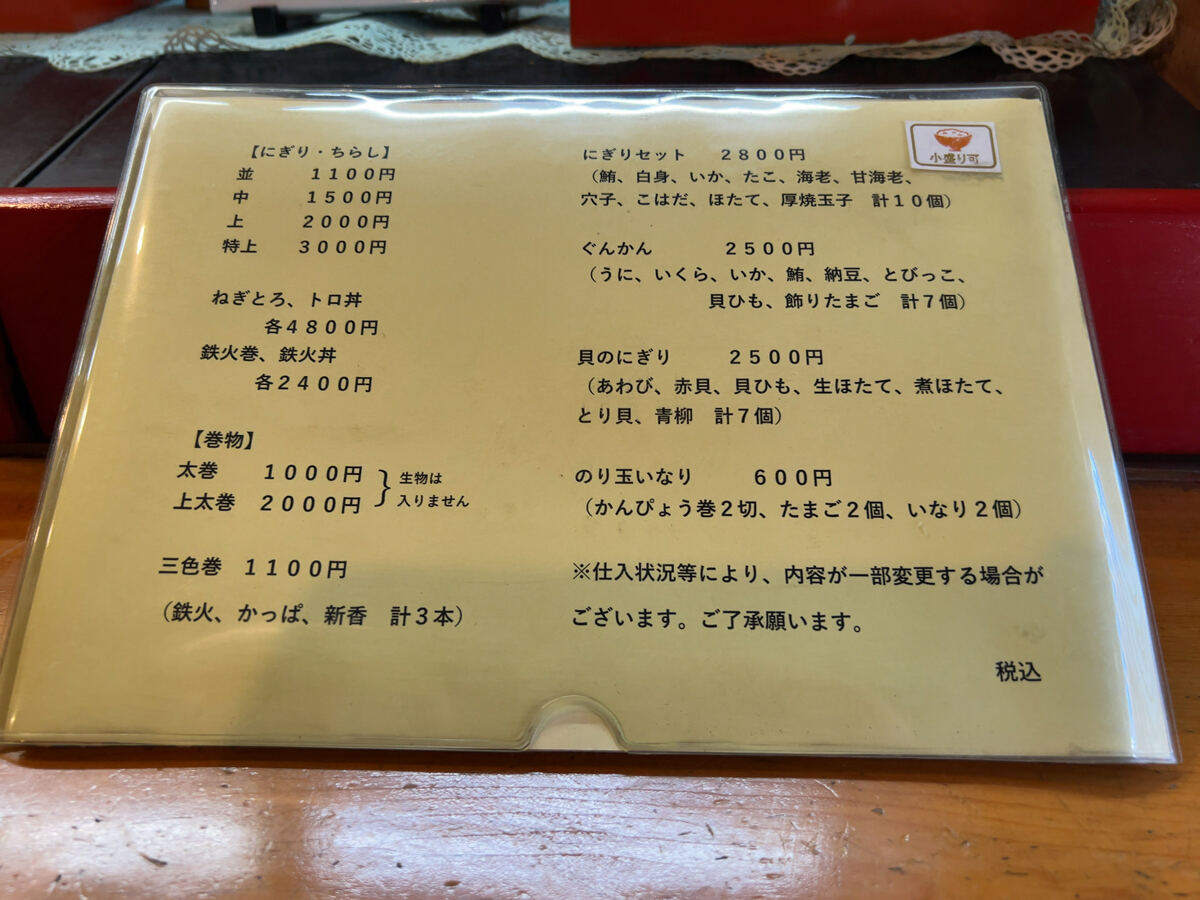 【にぎり・ちらし】
並　１１００円
中　１５００円
上　２０００円
特上　３０００円
ねぎとろ、トロ丼
各４８００円
鉄火巻、鉄火丼
各２４００円
【巻物】
太巻　１０００円
上太巻　２０００円
生物は
入りません
三色巻　１１００円
（鉄火、かっぱ、新香　計３本）
小盛り可
にぎりセット　２８００円
（鮪、白身、いか、たこ、海老、甘海老、
穴子、こはだ、ほたて、厚焼玉子　計１０個）
ぐんかん　２５００円
（うに、いくら、いか、鮪、納豆、とびっこ、
貝ひも、飾りたまご　計７個）
貝のにぎり　２５００円
（あわび、赤貝、貝ひも、生ほたて、煮ほたて、
とり貝、青柳　計７個）
のり玉いなり　６００円
（かんぴょう巻２切、たまご２個、いなり２個）
※仕入状況等により、内容が一部変更する場合が
ございます。ご了承願います。
税込